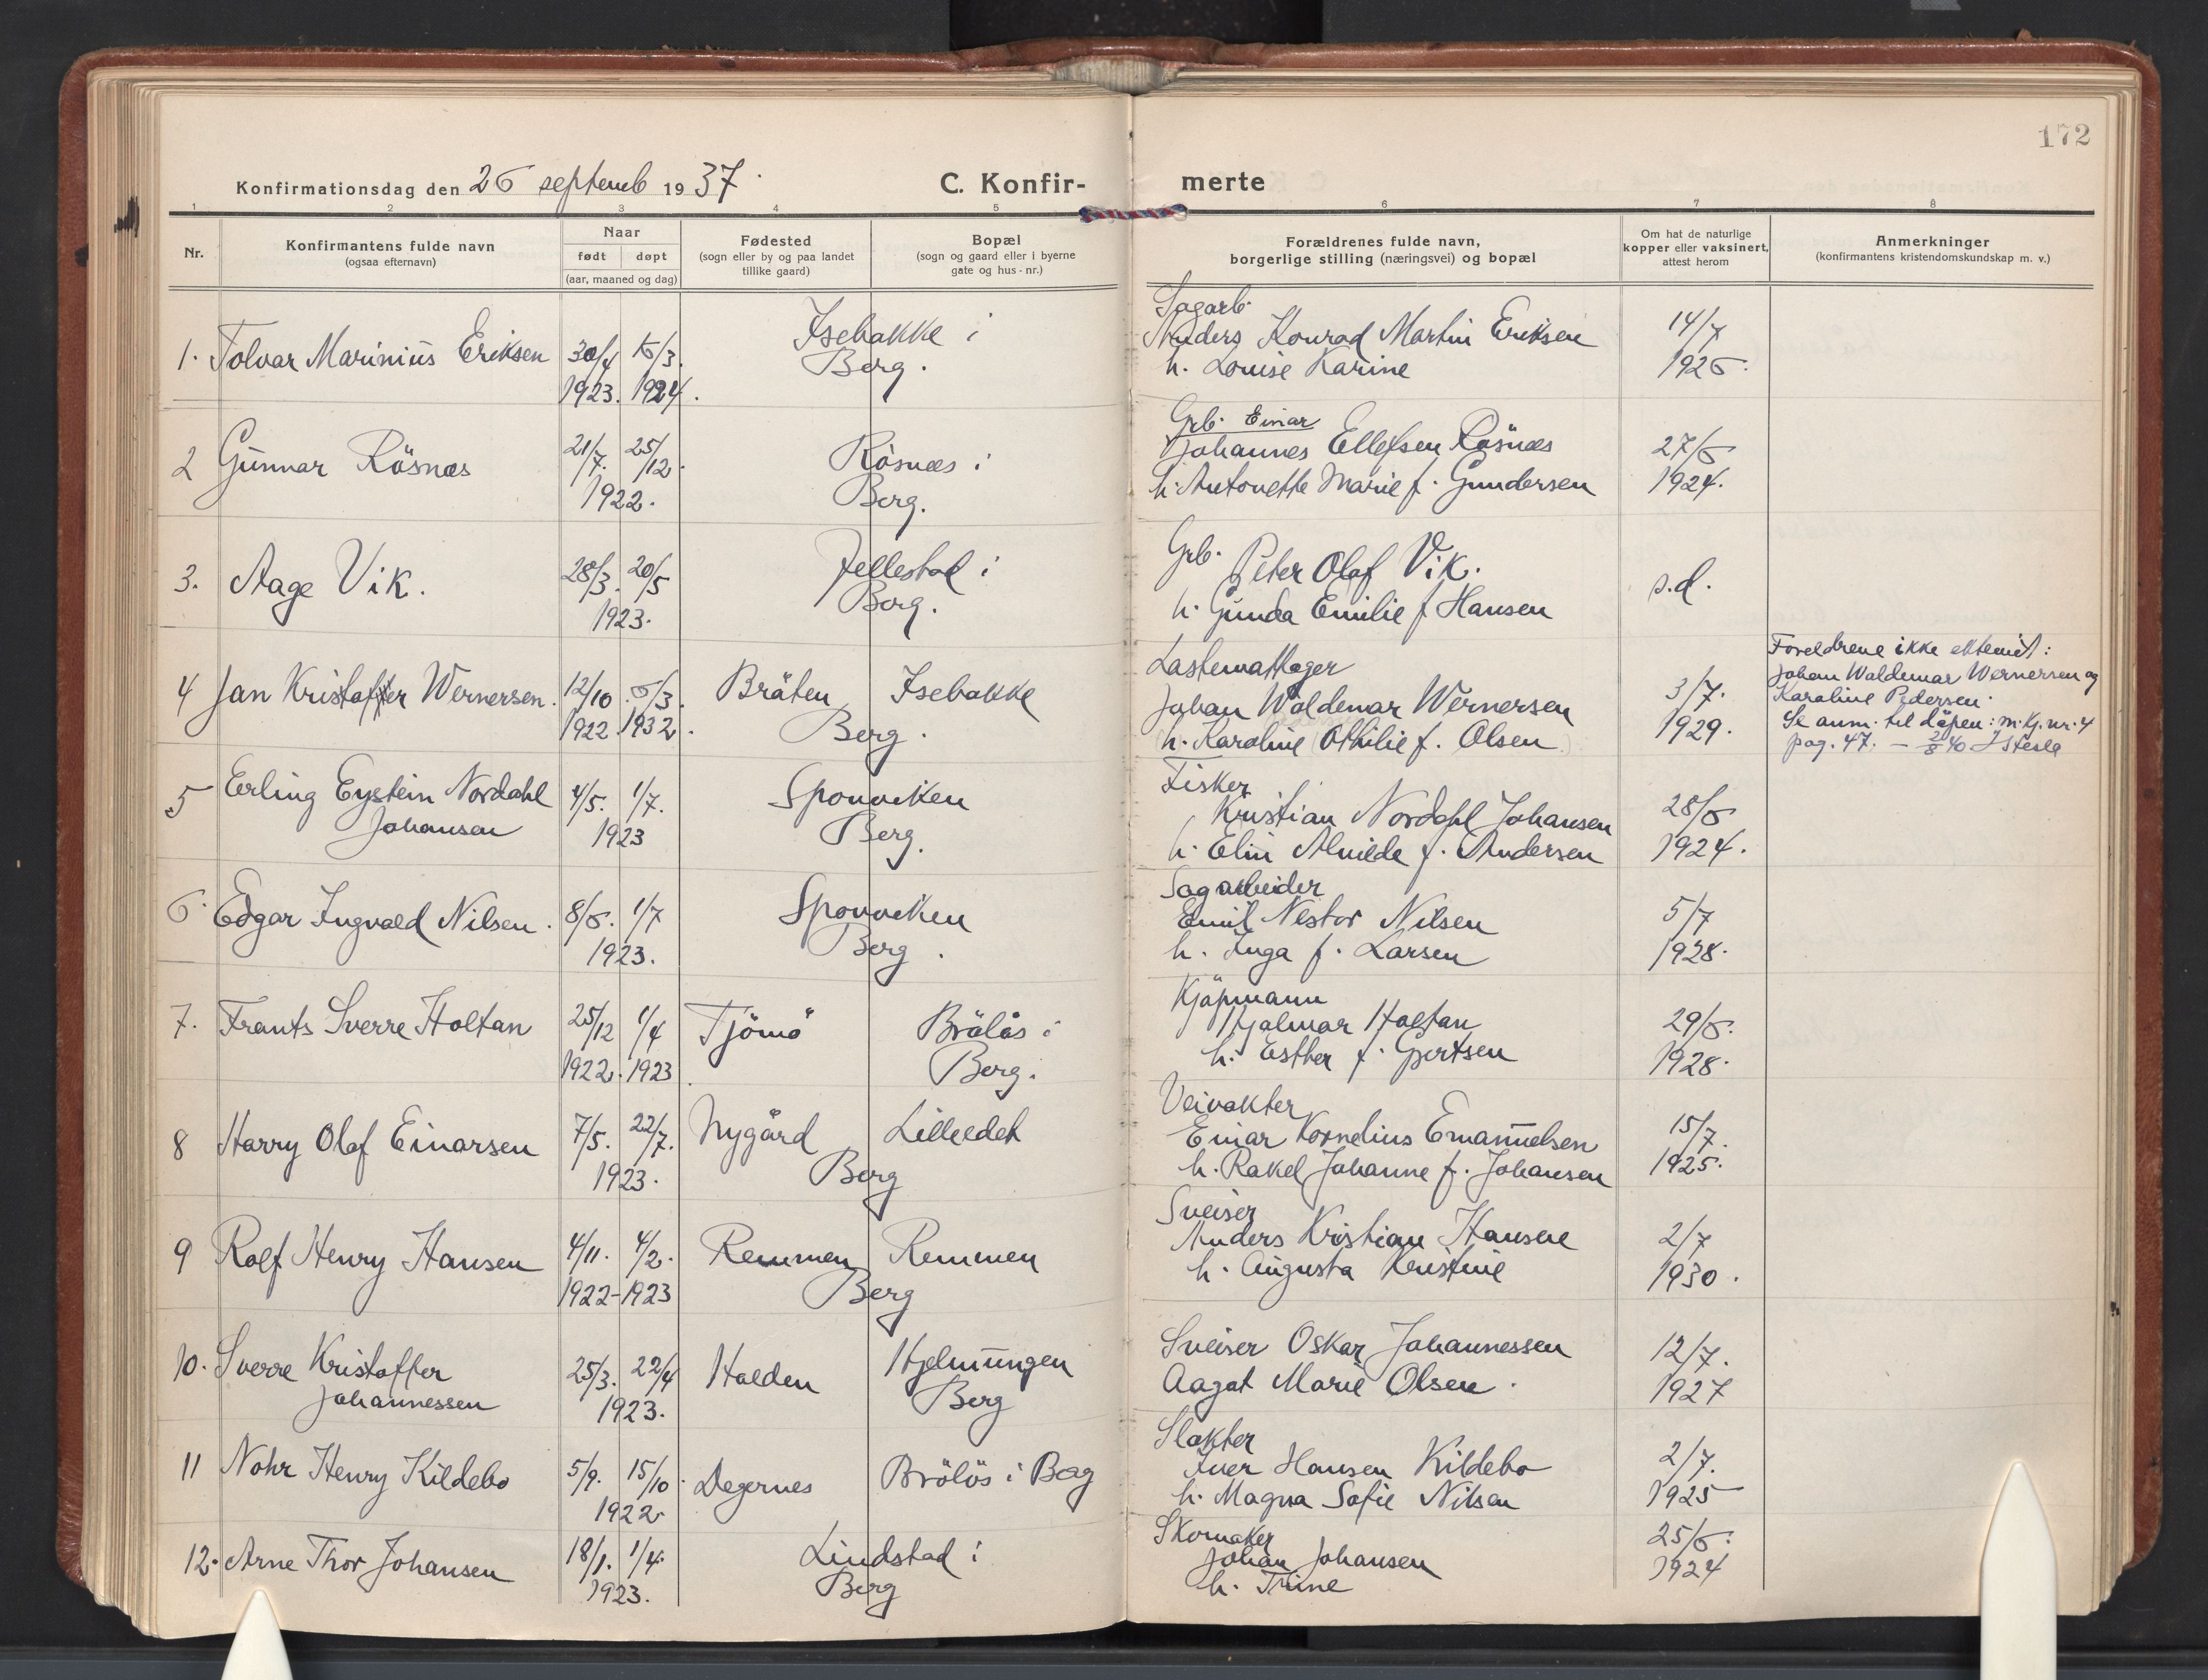 172
Konfirmationsdag den 26 septemb 1937.
C. Konfir-
merte
1 2 3 4 5 6 7 8
Nr.
Konfirmantens fulde navn
(ogsaa efternavn)
Naar
født døpt
(aar, maaned og dag)
Fødested
(sogn eller by og paa landet
tillike gaard)
Bopæl
(sogn og gaard eller i byerne
gate og hus-nr.)
Forældrenes fulde navn,
borgerlige stilling (næringsvei) og bopæl
Om hat de naturlige
kopper eller vaksinert,
attest herom
Anmerkninger
(konfirmantens kristendomskundskap m. v.)
Sagarb.
1. Tolvar Marinius Eriksen 30/4 16/3. Isebakke i Anders Konrad Martin Eriksen 14/7
1923. 1924. Berg. h. Louise Karine 1926.
Grb. Einar
2 Gunnar Rösnæs 21/7. 25/12. Rösnæs i Johannes Ellefsen Rösnæs 27/6
1922. Berg. h. Antonette Marie f. Gundersen 1924.
Grb.
3. Aage Vik. 28/3. 20/5 Jellestad i Peter Olaf Vik. s.d.
1923. Berg. h. Gunda Emilie f Hansen
Lastemottager Foreldrene ikke ektevid:
4 Jan Kristoffer Wernersen. 12/10 6/3. Bråten Isebakke Johan Waldemar Wernersen 3/7. Johan Waldemar Wernersen og
1922. 1932. Berg. h. Karoline (Othilie f. Olsen) 1929. Karoline Pedersen.
Se anm. til dåpen: m.kj. nr. 4
pag. 47. — 2/8 40
Fisker
5 Erling Eystein Nordahl 4/5. 1/7. Sponviken Kristian Nordahl Johansen 28/6
Johansen 1923 Berg. h. Elin Alvilde f. Andersen 1924.
Sagarbeider
6. Edgar Ingvald Nilsen. 8/6. 1/7 Sponviken Emil Nestor Nilsen 5/7
1923. Berg. h. Inga f. Larsen 1928.
Kjöpmann
7. Frants Sverre Holtan 25/12 1/4 Tjömö Brålås i Hjalmar Holtan 29/6.
1922. 1923. Berg. h. Esther f. Gjertsen 1928.
Veivakter
8 Harry Olaf Einarsen 7/5. 22/7. Nygård Lilledal Einar Kornelius Emanuelsen 15/7.
1923. Berg h. Rakel Johanne f. Johansen 1925.
Sveiser
9 Rolf Henry Hansen 4/11. 4/2. Remmen Remmen Anders Kristian Hansen 2/7
1922-1923 Berg h. Augusta Kristine 1930.
10. Sverre Kristoffer 25/3. 22/4 Halden Hjelmungen Sveiser Oskar Johannessen 12/7.
Johannessen 1923. Berg Aagot Marie Olsen. 1927
Slakter
11 Nohr Henry Kildebo 5/9. 15/10. Degernes Brålås i Berg Iver Hansen Kildebo 2/7.
1922. h. Magna Sofie Nilsen 1925
Skomaker
12. Arne Thor Johansen 18/1. 1/4. Lindstad i Johan Johansen 25/6.
1923. Berg h. Trine 1924